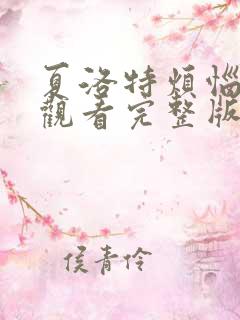 夏洛特煩惱
觀看完整版
侯青伶